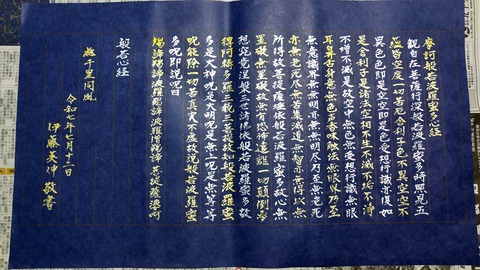 摩訶般若波羅蜜心経
観自在菩薩行深般若波羅蜜多時照見五
蘊皆空度一切苦厄舎利子色不異空空不
異色色即是空空即是色受想行識亦復如
是舎利子是諸法空相不生不滅不垢不浄
不増不減是故空中無色無受想行識無眼
耳鼻舌身意無色声香味触法無眼界乃至
無意識界無無明亦無無明尽乃至無老死
亦無老死尽無苦集滅道無智亦無得以無
所得故菩提薩埵依般若波羅蜜多故心無
罣礙無罣礙故無有恐怖遠離一切顛倒夢
想究竟涅槃三世諸仏依般若波羅蜜多故
得阿耨多羅三藐三菩提故知般若波羅蜜
多是大神呪是大明呪是無上呪是無等等
呪能除一切苦真実不虚故説般若波羅蜜
多呪即説呪曰
羯諦羯諦波羅羯諦波羅僧羯諦菩提薩婆訶
般若心経
為千里同風
令和七年月十二日
伊藤美伸 敬書